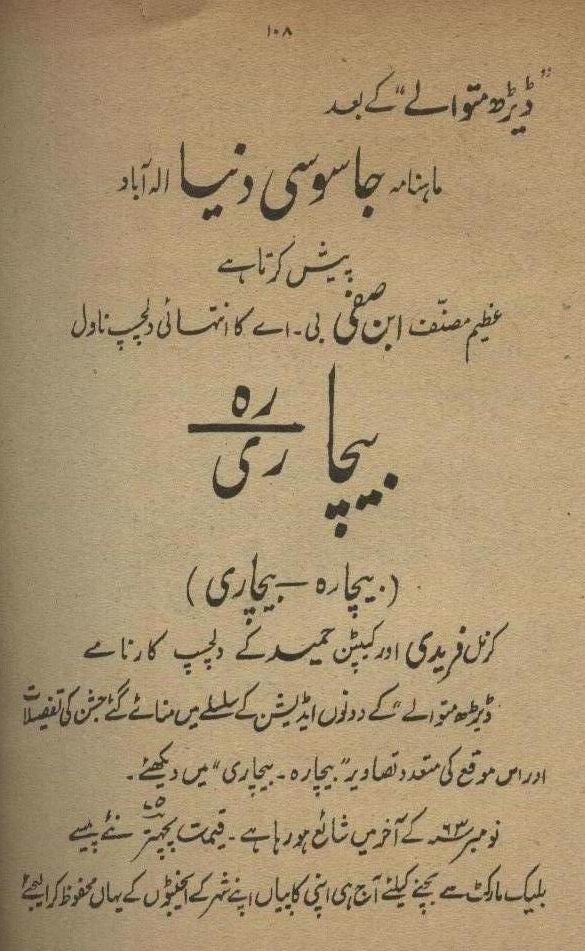 ۱۰۸
"ڈیڑھ متوالے" کے بعد
ماہنامہ جاسوسی دنیا الہ آباد
پیش کرتا ہے
عظیم مصنّف ابن صفی بی۔اے کا انتہائی دلچسپ ناول
بیچا رہ
ری
(بیچارہ – بیچاری)
کرنل فریدی اور کیپٹن حمید کے دلچسپ کارنامے
"ڈیڑھ متوالے" کے دونوں ایڈیشن کے سلسلے میں منائے گئے جشن کی تفصیلات
اور اس موقع کی متعدد تصاویر "بیچارہ۔ بیچاری" میں دیکھئے۔
نومبر ۶۳ء کے آخر میں شائع ہو رہا ہے۔ قیمت پچھتر نئے پیسے
بلیک مارکٹ سے بچنے کیلئے آج ہی اپنی کاپیاں اپنے شہر کے ایجنٹوں کے یہاں محفوظ کرا لیجئے